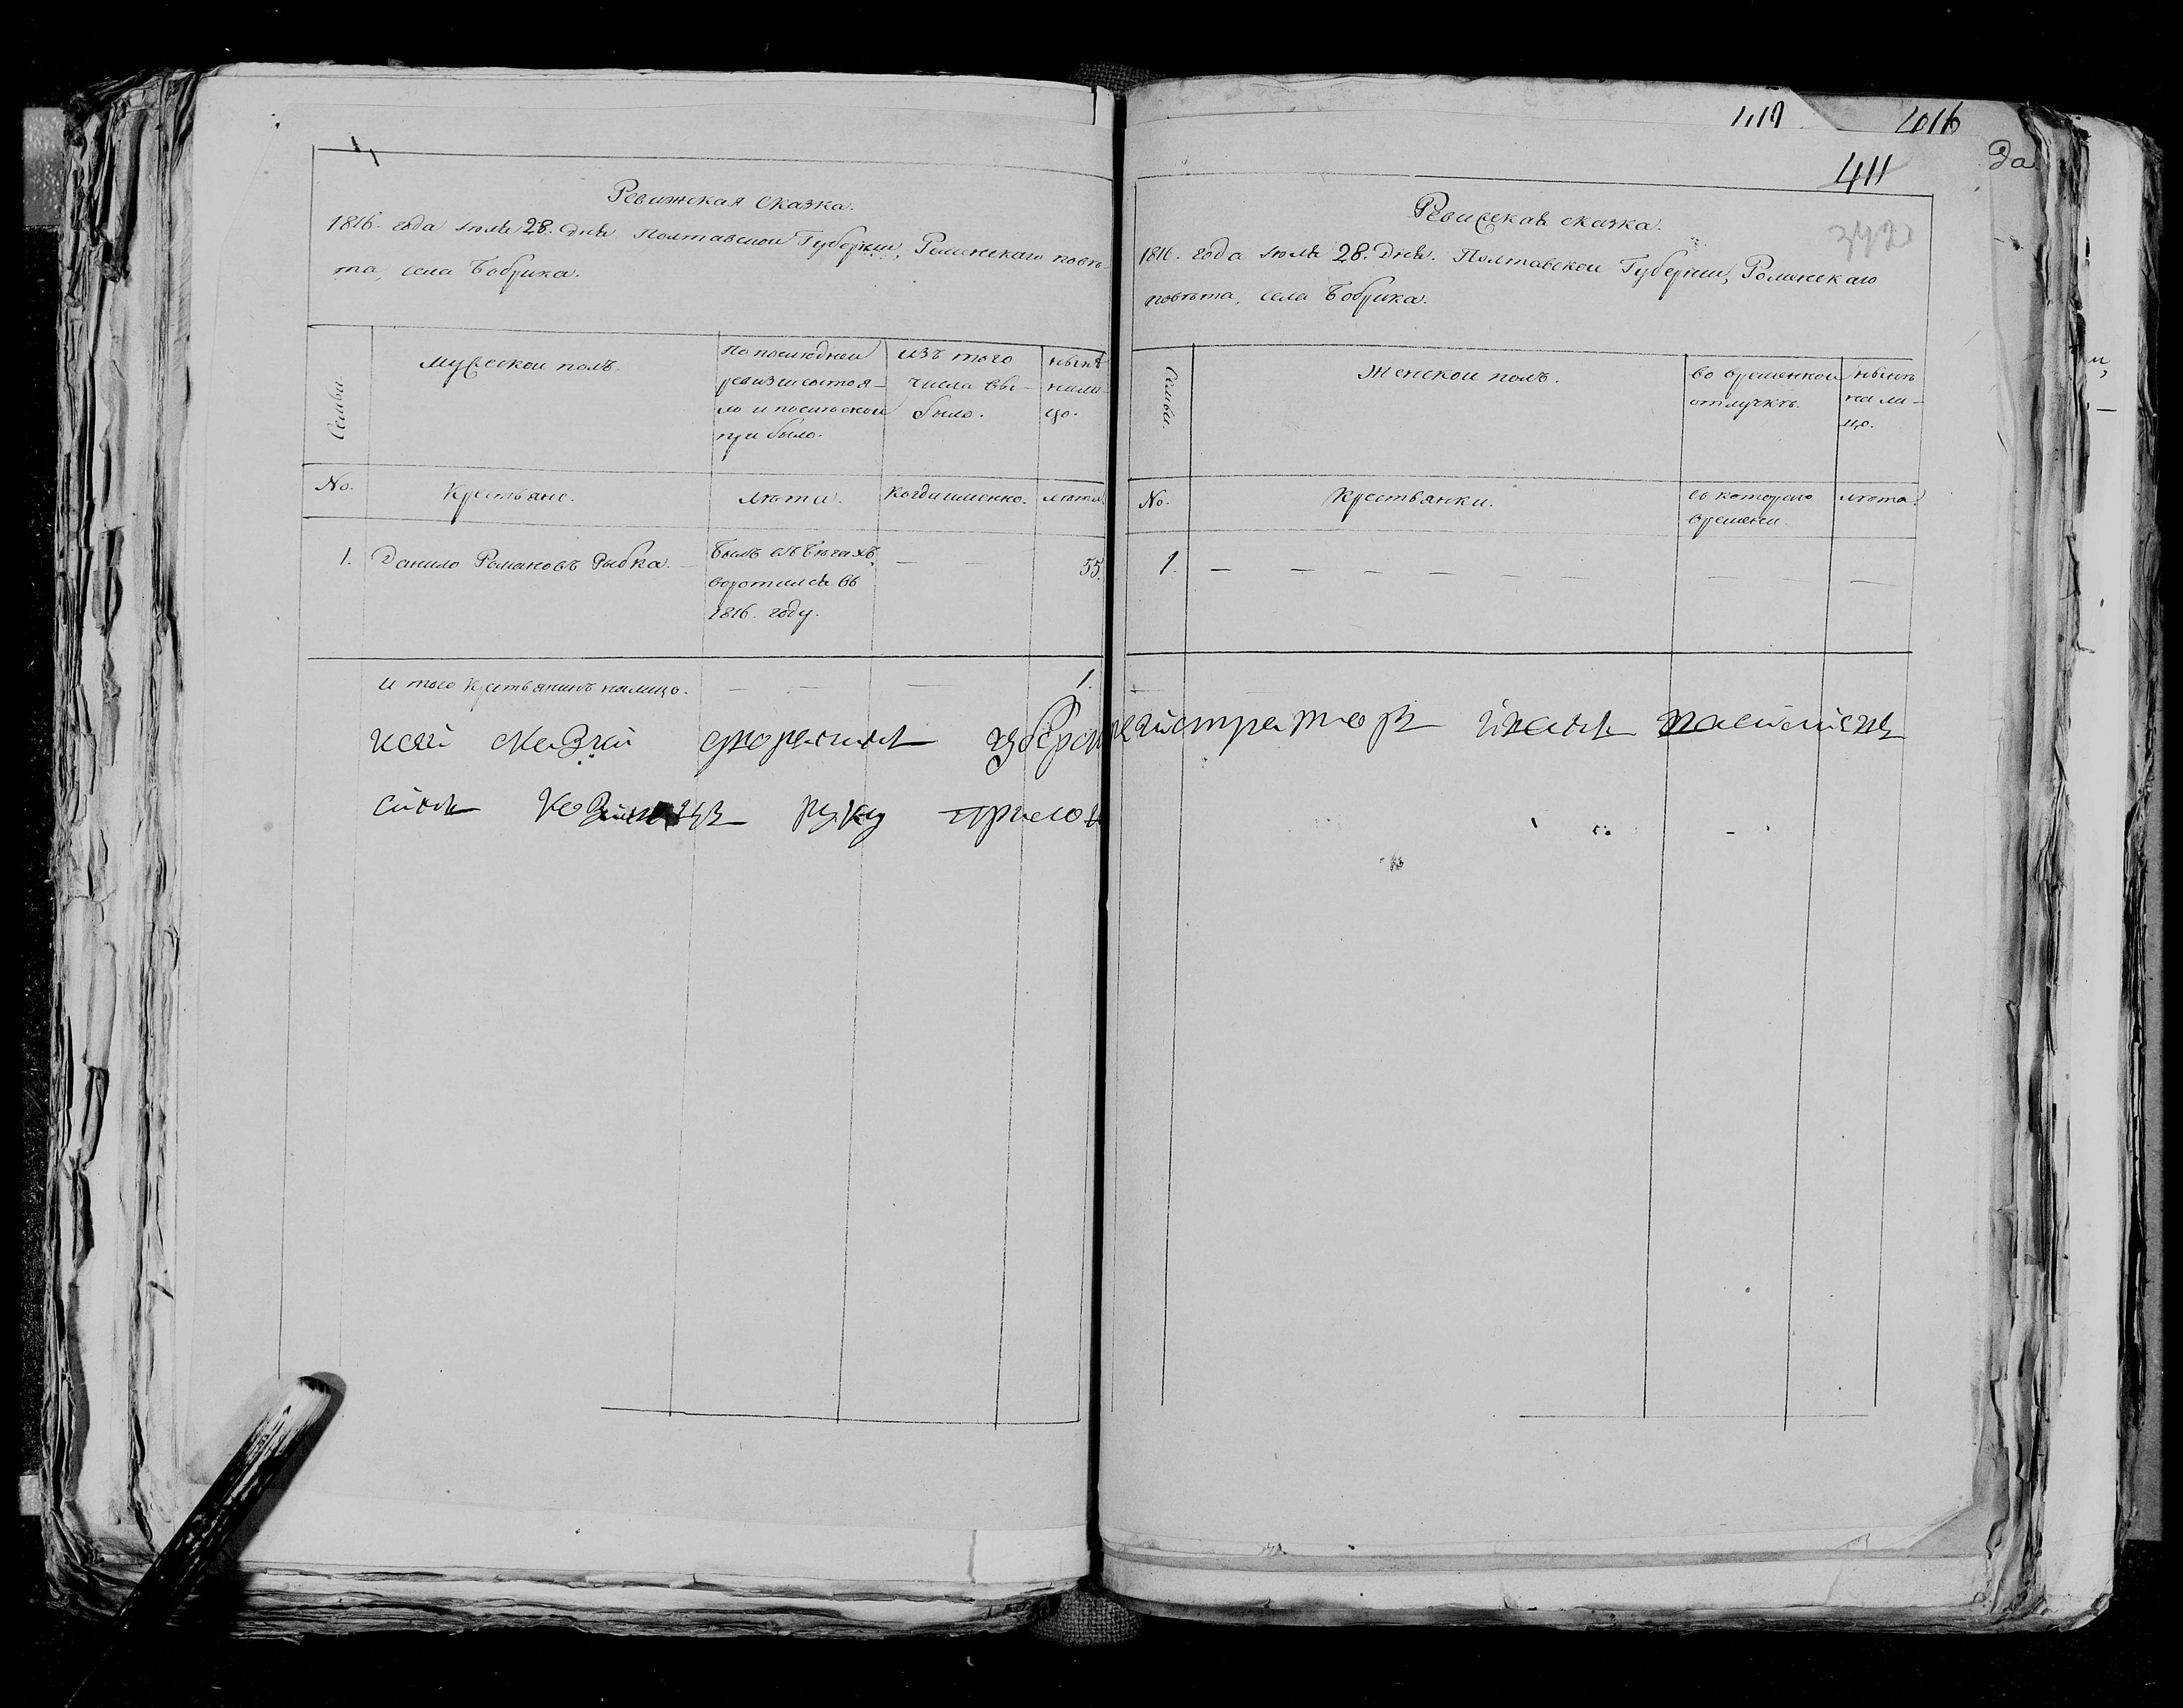 Ревижская сказка.
1816. года июля 28. дня Полтавской Губернии, Роменскаго повѣ-
та, села Бобрика.
Семьи.
Мужеской полъ.
По последней
ревизии состоя-
ло и после оной
прибыло.
изъ того
числа вы-
было.
нынѣ
нали-
цо.
No.
Крестьяне.
лѣта.
когда именно.
лѣта.
1. Данило Романовъ Рыбка. —
былъ въ бѣгахъ,
воротился въ
1816. году.
—
55.
И того крестьянинъ налицо. — — — 1.
411
416
411
да
342
Ревижская сказка.
1816. года июля 28. дня. Полтавской Губернии, Роменскаго
повѣта, села Бобрика.
Семьи.
Женской полъ.
во временной
отлучкѣ.
нынѣ
на ли-
цо.
No.
Крестьянки.
съ котораго
времени.
лѣта.
1. — — — — — — — —
сказки губерн регистраторъ иванъ
синъ руку прило